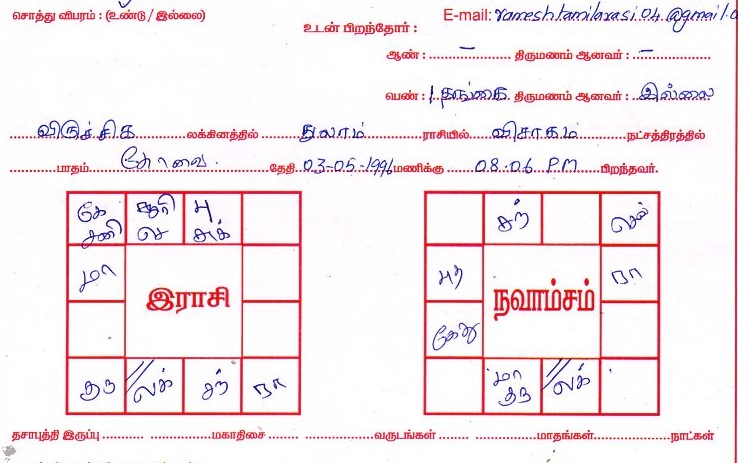 சொத்து விபரம் : (உண்டு / இல்லை)
E-mail: rameshtamilarasi.04.@gmail.c
உடன் பிறந்தோர் :
ஆண் : – திருமணம் ஆனவர் : –
பெண் : 1 தங்கை திருமணம் ஆனவர் : இல்லை
விருச்சிக லக்கினத்தில் துலாம் ராசியில் விசாகம் நட்சத்திரத்தில்
பாதம் கோவை தேதி 03-05-1996 மணிக்கு 08:06 PM பிறந்தவர்.
கே சூரி பு
சனி செ சுக்
மா
இராசி
குரு //லக் சந் ரா
சந் செவ்
புத ரா
நவாம்சம்
கேது
மா
குரு //லக்
தசாபுத்தி இருப்பு மகாதிசை வருடங்கள் மாதங்கள் நாட்கள்